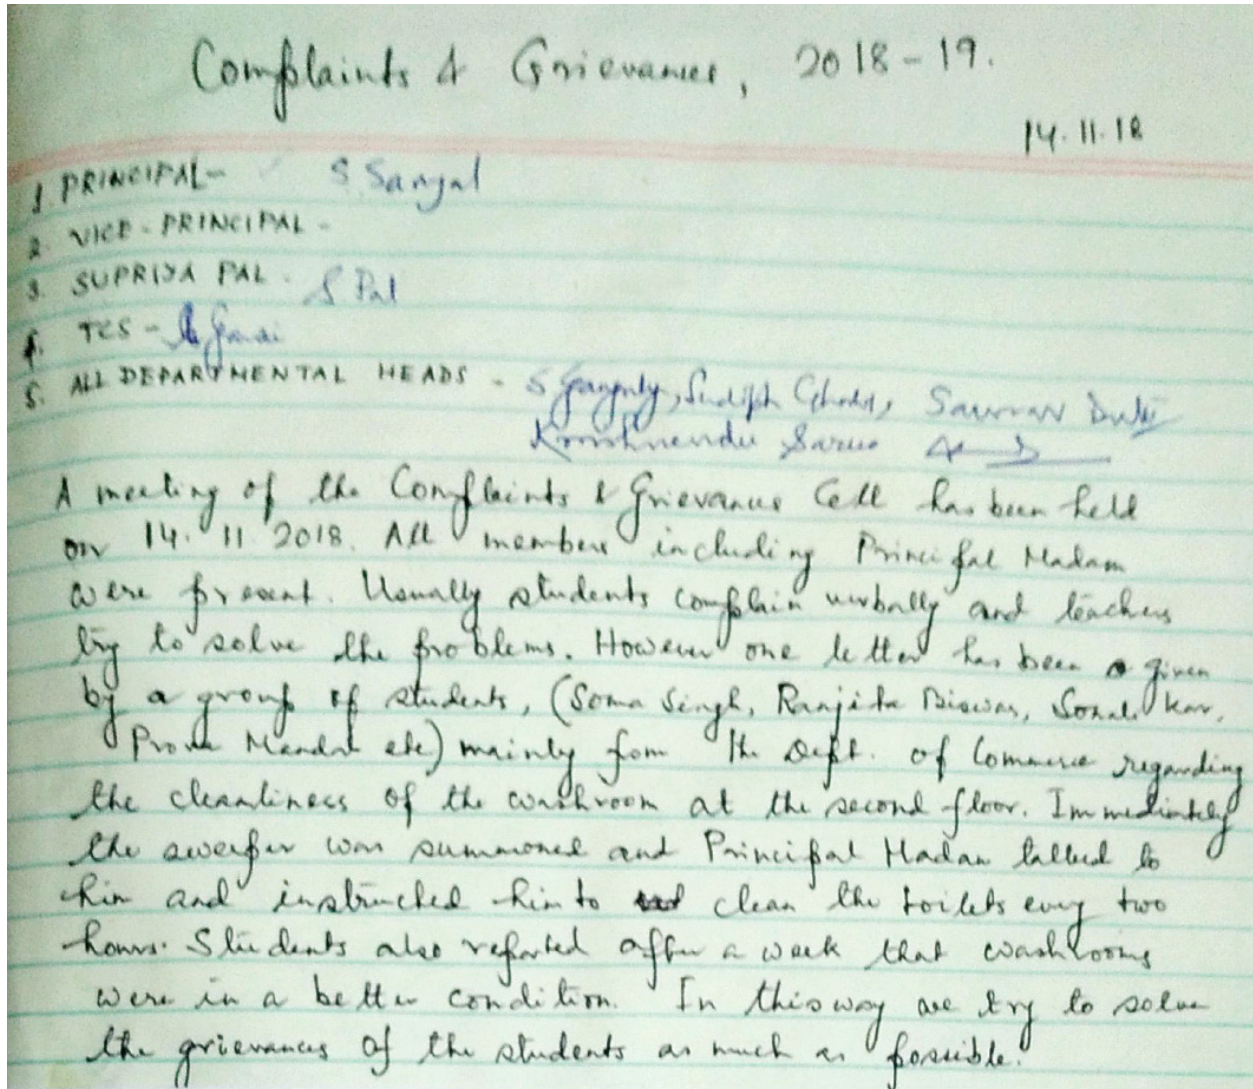 Complaints & Grievances, 2018-19.
14.11.18
1. PRINCIPAL- S Sanyal
2. VICE-PRINCIPAL -
3. SUPRIYA PAL. S Pal
4. TCS -
5. ALL DEPARTMENTAL HEADS - S Ganguly, Sudipta Ghosh, Saurav Dutta
Krishnendu
A meeting of the Complaints & Grievances Cell has been held
on 14. 11 2018. All members including Principal Madam
were present. Usually students complain verbally and teachers
try to solve the problems. However one letter has been given
by a group of students, (Soma Singh, Ranjita Biswas, Sonali Kar,
Prova Mandal etc) mainly from the Dept. of Commerce regarding
the cleanliness of the washroom at the second floor. Immediately
the sweeper was summoned and Principal Madam talked to
him and instructed him to clean the toilets every two
hours. Students also reported after a week that washrooms
were in a better condition. In this way we try to solve
the grievances of the students as much as possible.